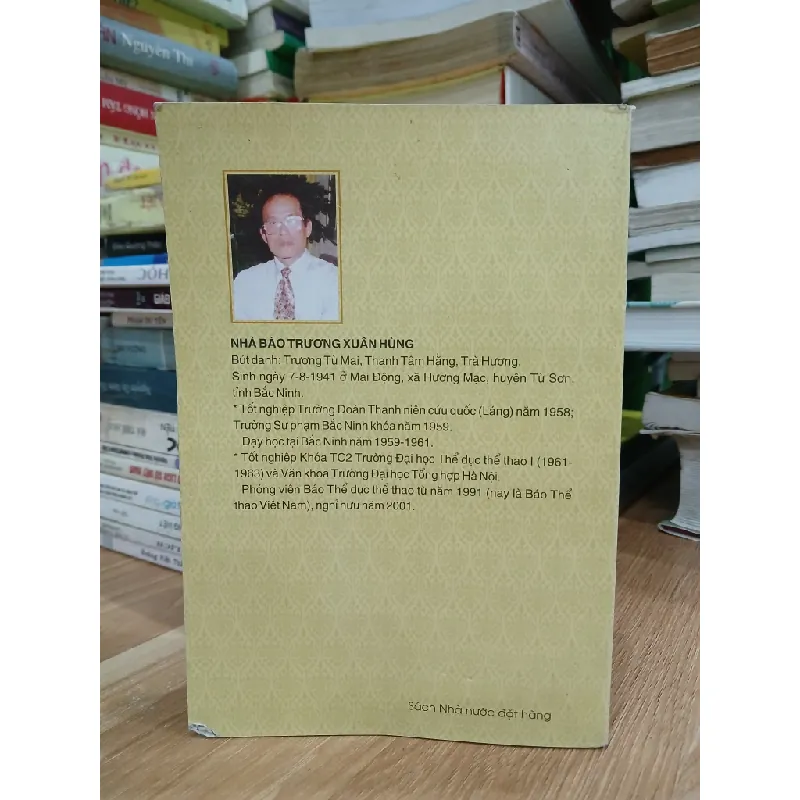 Nguyễn Thi
NHÀ BÁO TRƯƠNG XUÂN HÙNG
Bút danh: Trương Từ Mai, Thanh Tâm Hằng, Trà Hương.
Sinh ngày 7-8-1941 ở Mai Động, xã Hương Mạc, huyện Từ Sơn,
tỉnh Bắc Ninh.
* Tốt nghiệp Trường Đoàn Thanh niên cứu quốc (Láng) năm 1958;
Trường Sư phạm Bắc Ninh khóa năm 1959.
Dạy học tại Bắc Ninh năm 1959-1961.
* Tốt nghiệp Khóa TC2 Trường Đại học Thể dục thể thao I (1961-
1963) và Văn khoa Trường Đại học Tổng hợp Hà Nội.
Phóng viên Báo Thể dục thể thao từ năm 1991 (nay là Báo Thể
thao Việt Nam), nghỉ hưu năm 2001.
Sách Nhà nước đặt hàng